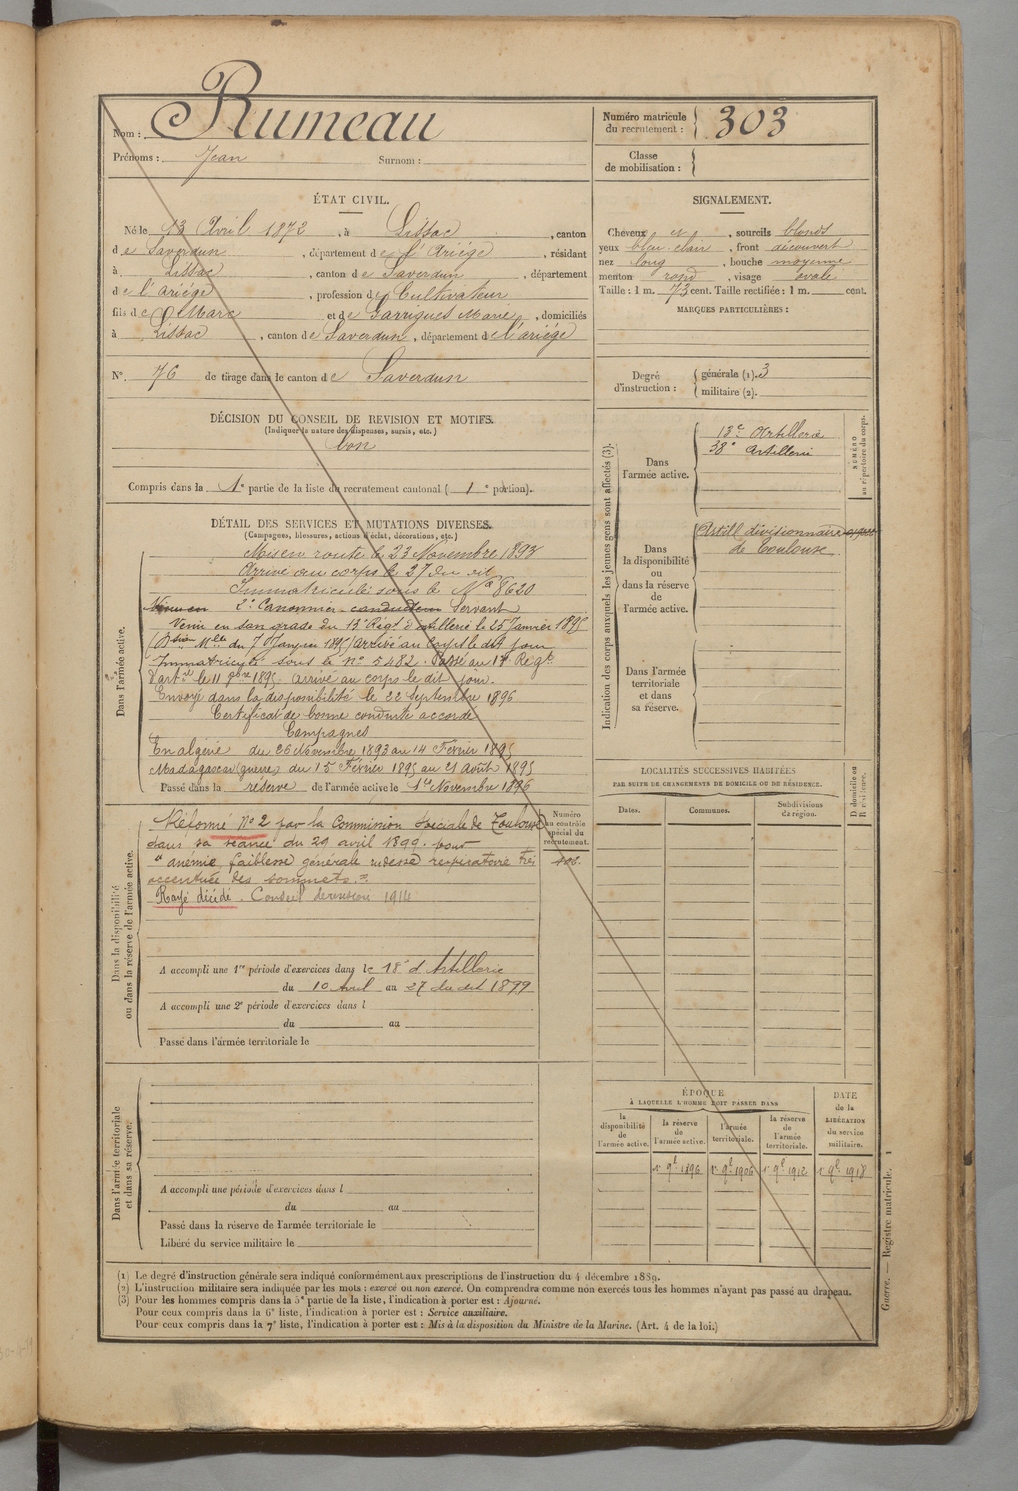 Nom : Rumeau
Prénoms : Jean Surnom :
Numéro matricule du recrutement : 303
Classe de mobilisation :
ÉTAT CIVIL.
Né le 13 Avril 1872, à Lissac, canton
de Saverdun, département de l'Ariége, résidant
à Lissac, canton de Saverdun, département
de l'ariége, profession de Cultivateur
fils de Marc et de Garrigues Marie, domiciliés
à Lissac, canton de Saverdun, département de l'ariége
N° 76 de tirage dans le canton de Saverdun
DÉCISION DU CONSEIL DE REVISION ET MOTIFS.
(Indiquer la nature des dispenses, sursis, etc.)
bon
Compris dans la 1e partie de la liste du recrutement cantonal ( 1e portion).
SIGNALEMENT.
Cheveux et, sourcils blonds
yeux bleu-clair, front découvert
nez long, bouche moyenne
menton rond, visage ovale
Taille : 1 m. 73 cent. Taille rectifiée : 1 m. cent.
MARQUES PARTICULIÈRES :
Degré d'instruction : générale (1). 3
militaire (2).
DÉTAIL DES SERVICES ET MUTATIONS DIVERSES.
(Campagnes, blessures, actions d'éclat, décorations, etc.)
Dans l'armée active.
Mis en route le 23 Novembre 1893
Arrivé au corps le 27 du dit
Immatriculé sous le N° 8620
2e Canonnier conducteur Servant
Venu en son grade du 13e Régt d'artillerie le 25 Janvier 1895
Mlle du 7 Janvier 1895) arrivé au corps le dit jour
Immatriculé sous le n° 5482. Passé au Régt
d'artie le 11 9bre 1895 arrivé au corps le dit jour.
Envoyé dans la disponibilité le 22 Septembre 1896
Certificat de bonne conduite accordé
Campagnes
En algérie du 26 Novembre 1893 au 14 Février 1895
Madagascar (guerre) du 15 Février 1895 au 21 Août 1895
Passé dans la réserve de l'armée active le 1er Novembre 1896
Indication des corps auxquels les jeunes gens sont affectés (3).
Dans l'armée active.
13e Artillerie
38e Artillerie
NUMÉRO au répertoire du corps.
Dans la disponibilité ou dans la réserve de l'armée active.
Artill divisionnaire
de Toulouse
Dans l'armée territoriale et dans sa réserve.
Dans la disponibilité ou dans la réserve de l'armée active.
Réformé N° 2 par la Commission Spéciale de Toulouse
dans sa séance du 29 avril 1899. pour
"anémie, faiblesse générale rudesse respiratoire très
accentuée des sommets."
Rayé décédé. Conseil de revision 1914
Numéro au contrôle spécial du recrutement.
A accompli une 1re période d'exercices dans le 18e d'Artillerie
du 10 Avril au 27 du dit 1899
A accompli une 2e période d'exercices dans l
du au
Passé dans l'armée territoriale le
LOCALITÉS SUCCESSIVES HABITÉES
PAR SUITE DE CHANGEMENTS DE DOMICILE OU DE RÉSIDENCE.
Dates. Communes. Subdivisions de région. D domicile ou R résidence.
Dans l'armée territoriale et dans sa réserve.
A accompli une période d'exercices dans l
du au
Passé dans la réserve de l'armée territoriale le
Libéré du service militaire le
ÉPOQUE
À LAQUELLE L'HOMME DOIT PASSER DANS
la disponibilité de l'armée active. la réserve de l'armée active. l'armée territoriale. la réserve de l'armée territoriale.
DATE de la LIBÉRATION du service militaire.
1er 9bre 1896 1er 9bre 1906 1er 9bre 1912 1er 9bre 1918
(1) Le degré d'instruction générale sera indiqué conformément aux prescriptions de l'instruction du 4 décembre 1889.
(2) L'instruction militaire sera indiquée par les mots : exercé ou non exercé. On comprendra comme non exercés tous les hommes n'ayant pas passé au drapeau.
(3) Pour les hommes compris dans la 5e partie de la liste, l'indication à porter est : Ajourné.
Pour ceux compris dans la 6e liste, l'indication à porter est : Service auxiliaire.
Pour ceux compris dans la 7e liste, l'indication à porter est : Mis à la disposition du Ministre de la Marine. (Art. 4 de la loi.)
Guerre. — Registre matricule. 1